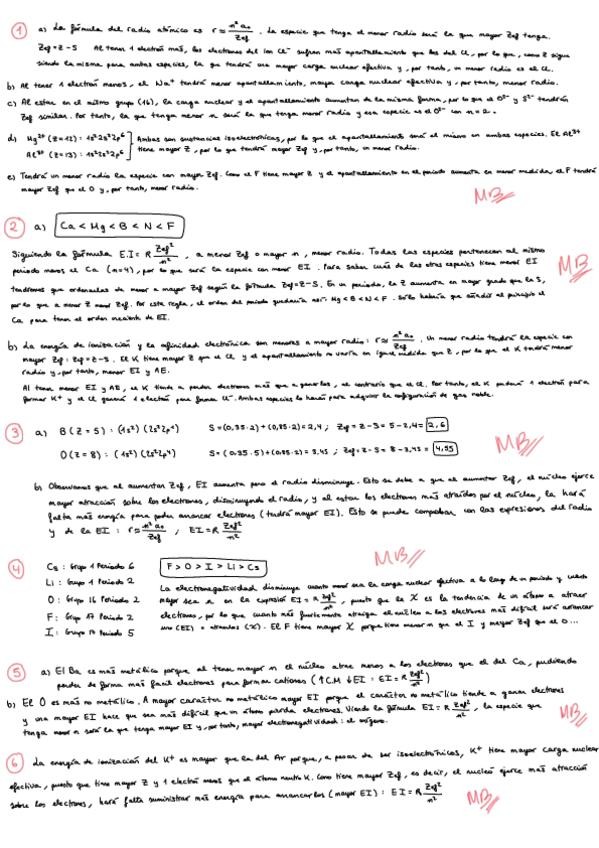 1 a) La fórmula del radio atómico es r ≈ n² a₀ / Zef. La especie que tenga el menor radio será la que mayor Zef tenga.
Zef = Z - S Al tener 1 electrón más, los electrones del ion Cl⁻ sufren más apantallamiento que los del Cl, por lo que, como Z sigue
siendo la misma para ambas especies, la que tendrá una mayor carga nuclear efectiva y, por tanto, un menor radio es el Cl.
b) Al tener 1 electrón menos, el Na⁺ tendrá menor apantallamiento, mayor carga nuclear efectiva y, por tanto, menor radio.
c) Al estar en el mismo grupo (16), la carga nuclear y el apantallamiento aumentan de la misma forma, por lo que el O²⁻ y S²⁻ tendrán
Zef similar. Por tanto, la que tenga menor n será la que tenga menor radio y esa especie es el O²⁻ con n=2.
d) Mg²⁺ (Z=12): 1s²2s²2p⁶ Ambas son sustancias isoelectrónicas, por lo que el apantallamiento será el mismo en ambas especies. El Al³⁺
Al³⁺ (Z=13): 1s²2s²2p⁶ tiene mayor Z, por lo que tendrá mayor Zef y, por tanto, un menor radio.
e) Tendrá un menor radio la especie con mayor Zef. Como el F tiene mayor Z y el apantallamiento en el periodo aumenta en menor medida, el F tendrá
mayor Zef que el O y, por tanto, menor radio.
MB
2 a) Ca < Mg < B < N < F
Siguiendo la fórmula E.I = R Zef² / n², a menor Zef o mayor n, menor radio. Todas las especies pertenecen al mismo
periodo menos el Ca (n=4), por lo que será la especie con menor EI. Para saber cuál de las otras especies tiene menor EI
MB
tendremos que ordenarlas de menor a mayor Zef según la fórmula Zef=Z-S. En un periodo, la Z aumenta en mayor grado que la S,
por lo que a menor Z menor Zef. Por esta regla, el orden del periodo quedaría así: Mg < B < N < F. Sólo habría que añadir al principio el
Ca para tener el orden creciente de EI.
b) La energía de ionización y la afinidad electrónica son menores a mayor radio: r ≈ n² a₀ / Zef. Un menor radio tendrá la especie con
mayor Zef: Zef = Z - S. El K tiene mayor Z que el Cl y el apantallamiento no varía en igual medida que Z, por lo que el K tendrá menor
radio y, por tanto, menor EI y AE.
Al tener menor EI y AE, el K tiende a perder electrones más que a ganarlos, al contrario que el Cl. Por tanto, el K perderá 1 electrón para
formar K⁺ y el Cl ganará 1 electrón para formar Cl⁻. Ambas especies lo harán para adquirir la configuración de gas noble.
3 a) B (Z=5): (1s²) (2s²2p¹) S = (0,35·2) + (0,85·2) = 2,4; Zef = Z - S = 5 - 2,4 = 2,6
O (Z=8): (1s²) (2s²2p⁴) S = (0,35·5) + (0,85·2) = 3,45; Zef = Z - S = 8 - 3,45 = 4,55
MB
b) Observamos que al aumentar Zef, EI aumenta pero el radio disminuye. Esto se debe a que al aumentar Zef, el núcleo ejerce
mayor atracción sobre los electrones, disminuyendo el radio, y al estar los electrones más atraídos por el núcleo, la hará
falta más energía para poder arrancar electrones (tendrá mayor EI). Esto se puede comprobar con las expresiones del radio
y de la EI: r ≈ n² a₀ / Zef, EI = R Zef² / n²
MB
4 Cs: Grupo 1 Periodo 6 F > O > I > Li > Cs
Li: Grupo 1 Periodo 2 La electronegatividad disminuye cuanto menor sea la carga nuclear efectiva a lo largo de un periodo y cuanto
O: Grupo 16 Periodo 2 mayor sea n en la expresión EI = R Zef² / n², puesto que la X es la tendencia de un átomo a atraer
F: Grupo 17 Periodo 2 electrones, por lo que cuanto más fuertemente atraiga el núcleo a los electrones más difícil será arrancar
I: Grupo 17 Periodo 5 uno (EI) o atraerlos (X). El F tiene mayor X porque tiene menor n que el I y mayor Zef que el O...
5 a) El Ba es más metálico porque al tener mayor n el núcleo atrae menos a los electrones que el del Ca, pudiendo
perder de forma más fácil electrones para formar cationes (↑C.M ↓EI : EI = R Zef² / n²)
b) El O es más no metálico. A mayor carácter no metálico mayor EI porque el carácter no metálico tiende a ganar electrones
y una mayor EI hace que sea más difícil que un átomo pierda electrones. Viendo la fórmula EI = R Zef² / n², la especie que
tenga menor n será la que tenga mayor EI y, por tanto, mayor electronegatividad: el oxígeno.
MB
6 La energía de ionización del K⁺ es mayor que la del Ar porque, a pesar de ser isoelectrónicos, K⁺ tiene mayor carga nuclear
efectiva, puesto que tiene mayor Z y 1 electrón menos que el átomo neutro K. Como tiene mayor Zef, es decir, el núcleo ejerce más atracción
sobre los electrones, hará falta suministrar más energía para arrancarlos (mayor EI): EI = R Zef² / n²
MB